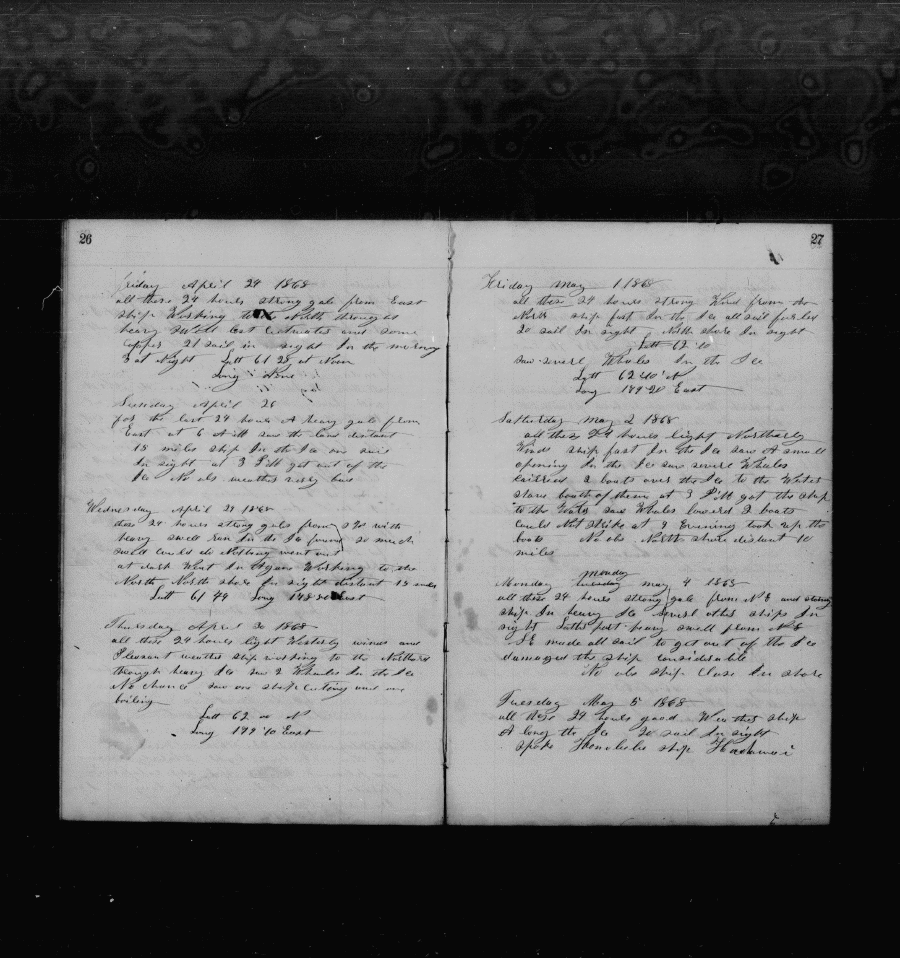 26
Friday April 24 1868
all these 24 hours strong gale from East
ship Working to North
heavy swell lost cutwater and some
Copper 21 sail in sight In the morning
3 at Night Latt 61 28 at Noon
Long None
Sunday April 26
for the last 24 hours A heavy gale from
East at 6 A M saw the land distant
15 miles ship In the Ice one sail
In sight at 3 P M got out of the
Ice No obs weather very bad
Wednesday April 29 1868
these 24 hours strong gale from with
heavy swell ran In the Ice found so much
swell could do Nothing went out
at dark Went In Agane Working to the
North North shore In sight distant 15 miles
Latt 61 44 Long 178 20 East
Thursday April 30 1868
all these 24 hours light Westerly winds and
Pleasant weather ship working to the Northard
through heavy Ice saw 2 Whales In the Ice
No chance saw one ship cuting and one
boiling
Latt 62 00 N
Long 179 10 East
27
Friday May 1 1868
all these 24 hours strong Wind from the
North ship fast In the Ice all sail furled
20 sail In sight North shore In sight
Latt 62 10
saw severl Whales In the Ice
Latt 62 40 N
Long 179 20 East
Satturday May 2 1868
all these 24 hours light Northarly
Winds ship fast In the Ice saw A small
opening In the Ice saw severl Whales
carried 2 boats over the Ice to the Water
stove booth of them at 3 P M got the ship
to the Water saw Whales lowered 2 boats
could Not strike at 9 Evening took up the
boats No obs North shore distant 10
miles
monday
Monday tuesday may 4 1868
all these 24 hours strong gale from N E and stormy
ship In heavy Ice severl other ships In
sight heavy swell from N E
S E made all sail to get out of the Ice
damaged the ship considerable
No obs ship Close In shore
Tuesday May 5 1868
all these 24 hours good Weather ship
A long the Ice 20 sail In sight
spoke Honolulu ship